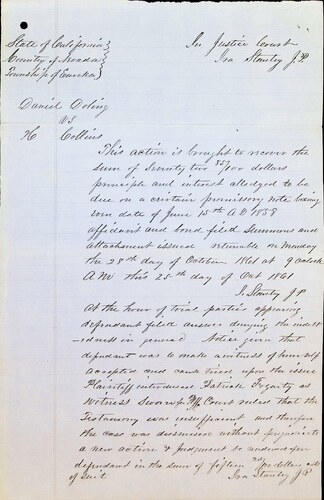 State of California
County of Nevada
Township of Eureka
In Justice Court
Ira Stanley J.P.
Daniel Doling
vs
H Collins
This action is brought to recover the
sum of Seventy two 85/100 dollars
principle and interest alledged to be
due on a certain promissory note being
date of June 15th A D 1858
affidavit and bond filed summons and
attachment issued retunable on Monday
the 28th day of October 1861 at 9 oclock
A M this 25th day of Oct 1861
I. Stanley J P
At the hour of trial parties appearing
defendant filed answer denying the indebt
edness in general Notice given that
defendant was to make a witness of himself
accepted and cause tried upon the issue
Plaintiff introduced Patrick Fogarty as
Witness Sworn Court ruled that the
Testimony was insufficient and therefore
the case was dismissed without prejudice to
a new action & Judgment so entered for
defendant in the sum of fifteen dollars costs
of Suit Ira Stanley J P